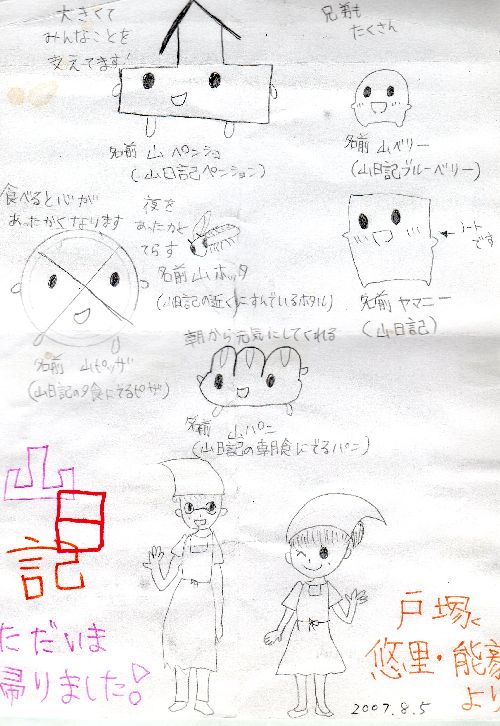 大きくて
みんなことを
支えてます!
兄弟も
たくさん
名前 山ペンショ
(山日記ペンション)
名前 山ベリー
(山日記ブルーベリー)
食べると心が
あったかくなります
夜を
あったかく
てらす
ノート
です
名前 山ホッタ
(山日記の近くにすんでいるホタル)
名前 ヤマニー
(山日記)
朝から元気にしてくれる
名前 山ピッザ
(山日記の夕食にでるピザ)
名前 山パン
(山日記の朝食にでるパン)
山日記
ただいま
帰りました!
戸塚
悠里・能
より
2007.8.5